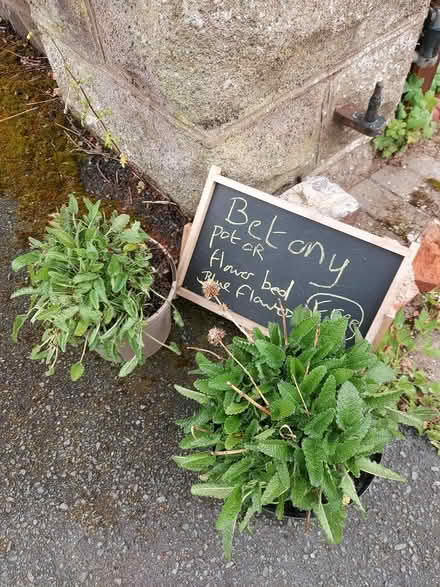 Betony
pot or
flower bed
Blue flowers
Free